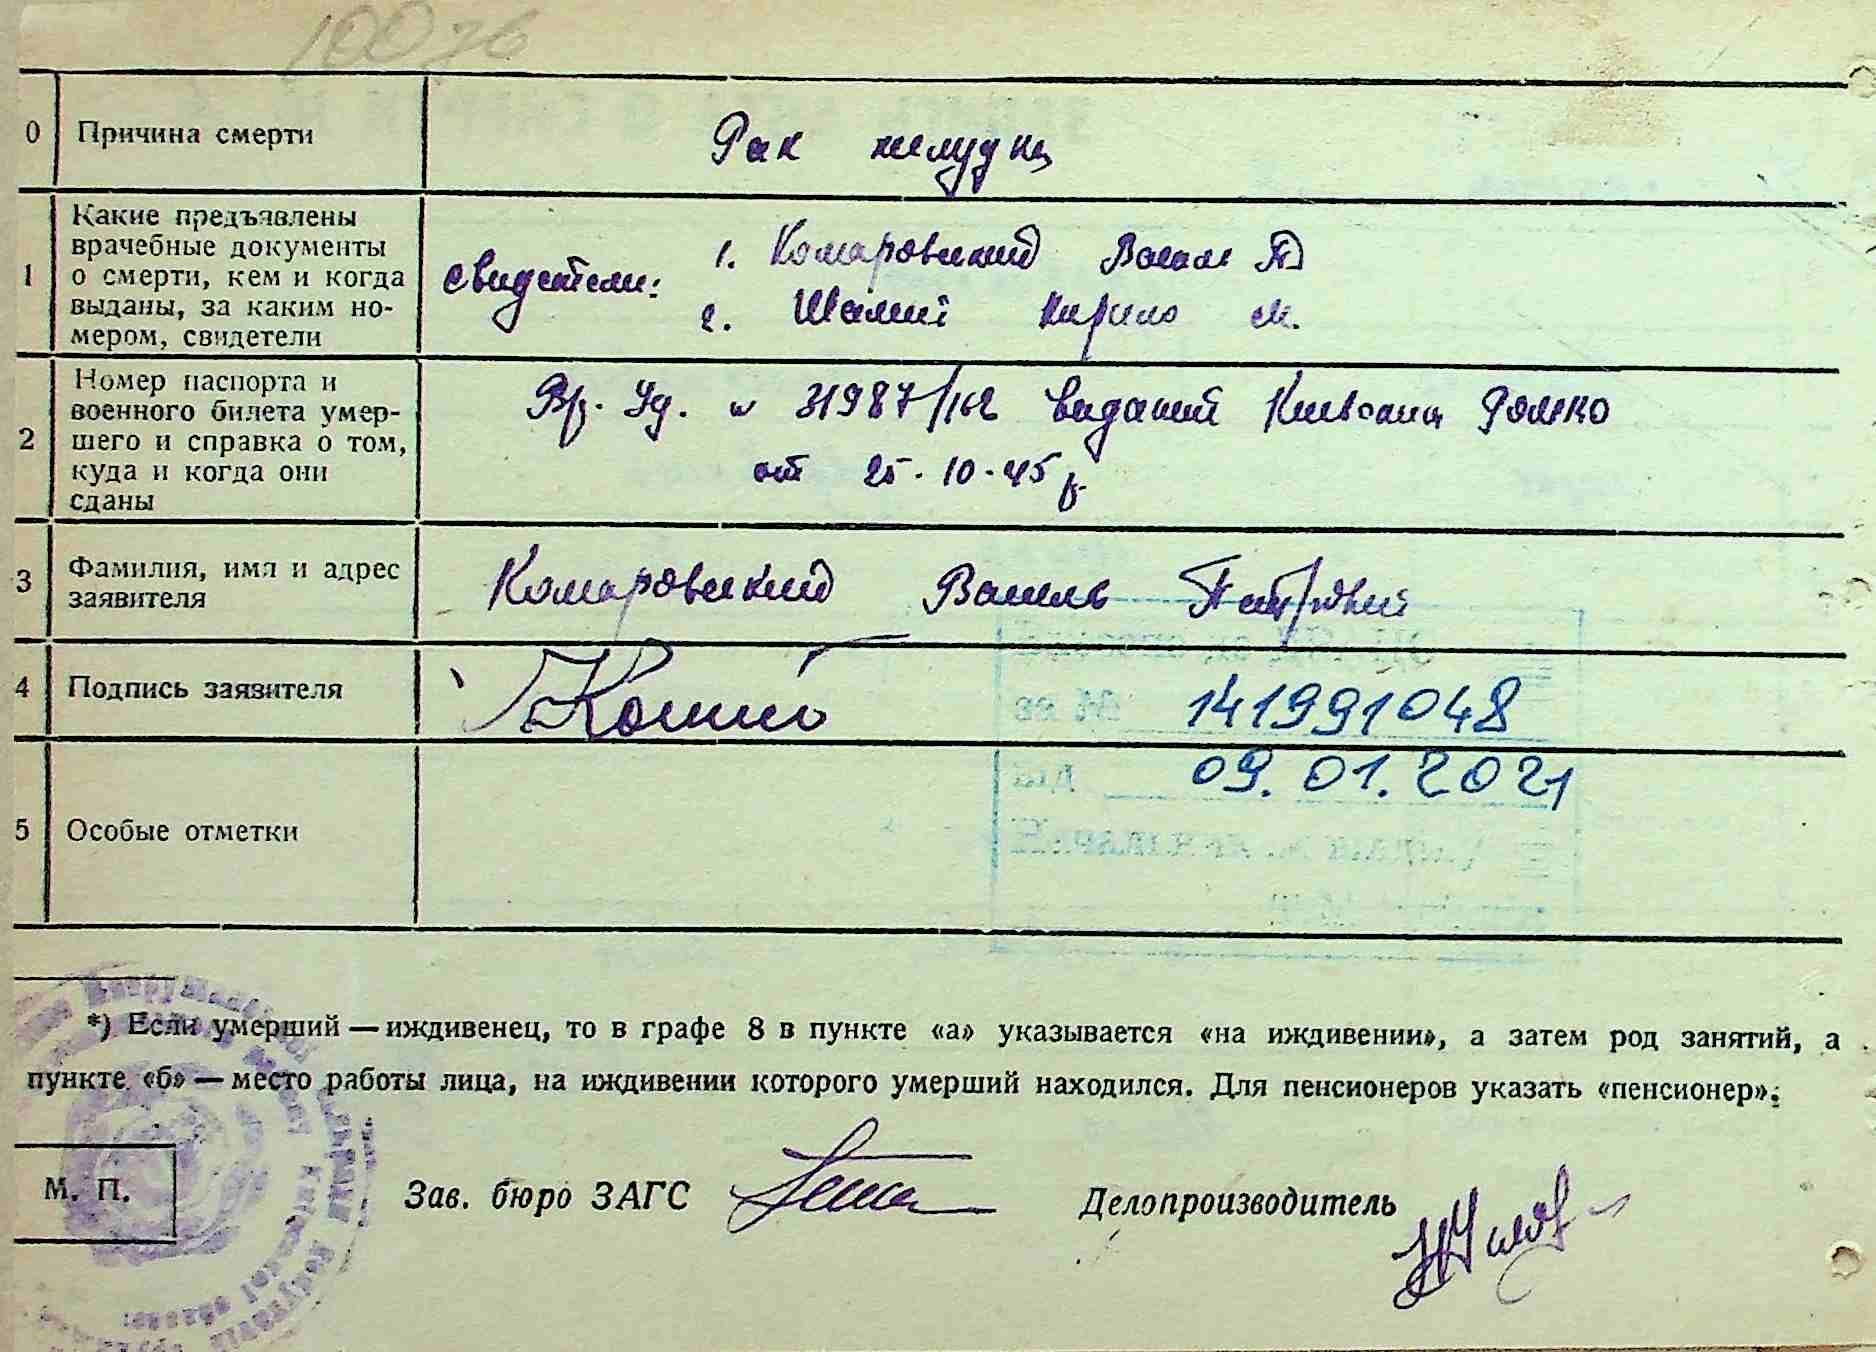 10076
0 Причина смерти Рак желудка
1 Какие предъявлены
врачебные документы
о смерти, кем и когда
выданы, за каким но-
мером, свидетели
Свидетели: 1. Комаровський Василь П
2. Шамій Кирило М.
2 Номер паспорта и
военного билета умер-
шего и справка о том,
куда и когда они
сданы
Вр. Уд. № 31987/162 виданий
от 25.10.45 р.
3 Фамилия, имя и адрес
заявителя
Комаровський Василь Петрович
4 Подпись заявителя
141991048
09.01.2021
5 Особые отметки
*) Если умерший — иждивенец, то в графе 8 в пункте «а» указывается «на иждивении», а затем род занятий, а
пункте «б» — место работы лица, на иждивении которого умерший находился. Для пенсионеров указать «пенсионер».
М. П. Зав. бюро ЗАГС Делопроизводитель